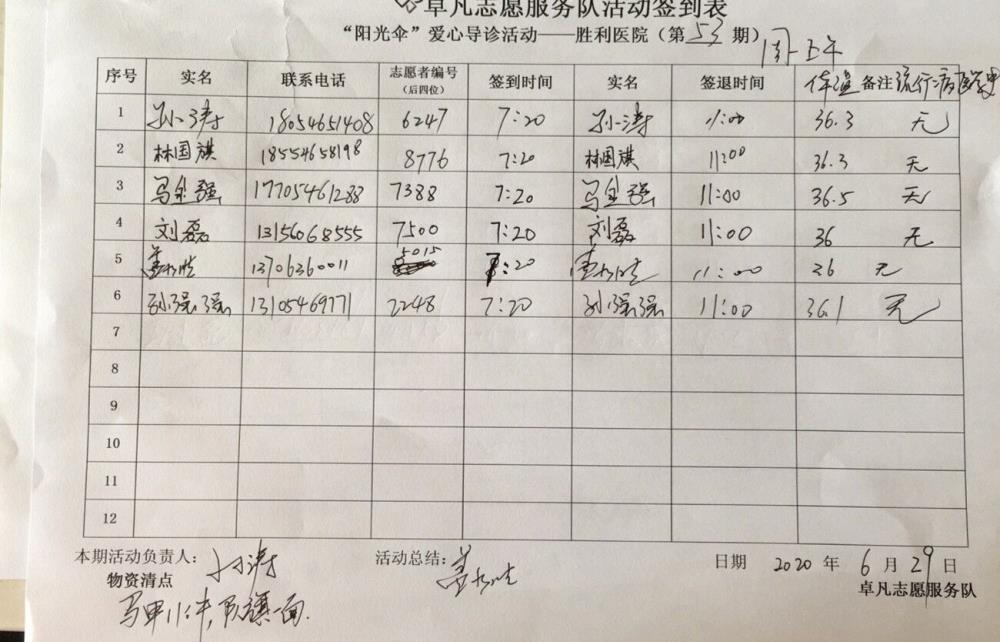 卓凡志愿服务队活动签到表
“阳光伞”爱心导诊活动——胜利医院（第53期）周一上午
序号 实名 联系电话 志愿者编号（后四位） 签到时间 实名 签退时间 体温 备注 流行病医学史
1 孙涛 18054651408 6247 7:20 孙涛 11:00 36.3 无
2 林国旗 18554658198 8776 7:20 林国旗 11:00 36.3 无
3 马金强 17705461288 7388 7:20 马金强 11:00 36.5 无
4 刘磊 13156068555 7500 7:20 刘磊 11:00 36 无
5 13706360011 5015 7:20 11:00 36 无
6 孙强强 13105469771 2248 7:20 孙强强 11:00 36.1 无
7
8
9
10
11
12
本期活动负责人：孙涛 活动总结： 日期 2020 年 6 月 29 日
物资清点 卓凡志愿服务队
马甲11件，队旗一面.